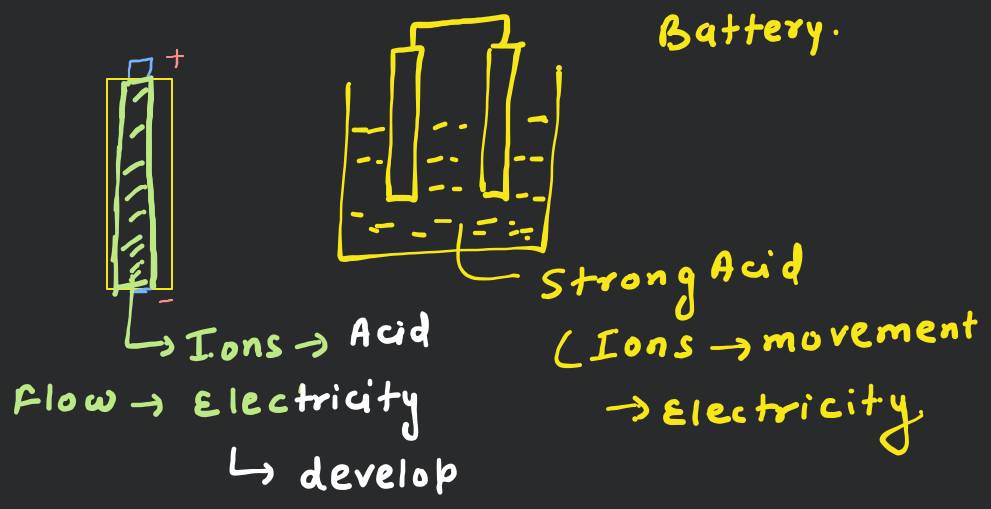 Battery.
+
-
Ions → Acid
Flow → Electricity
↳ develop
Strong Acid
(Ions → movement
→ Electricity